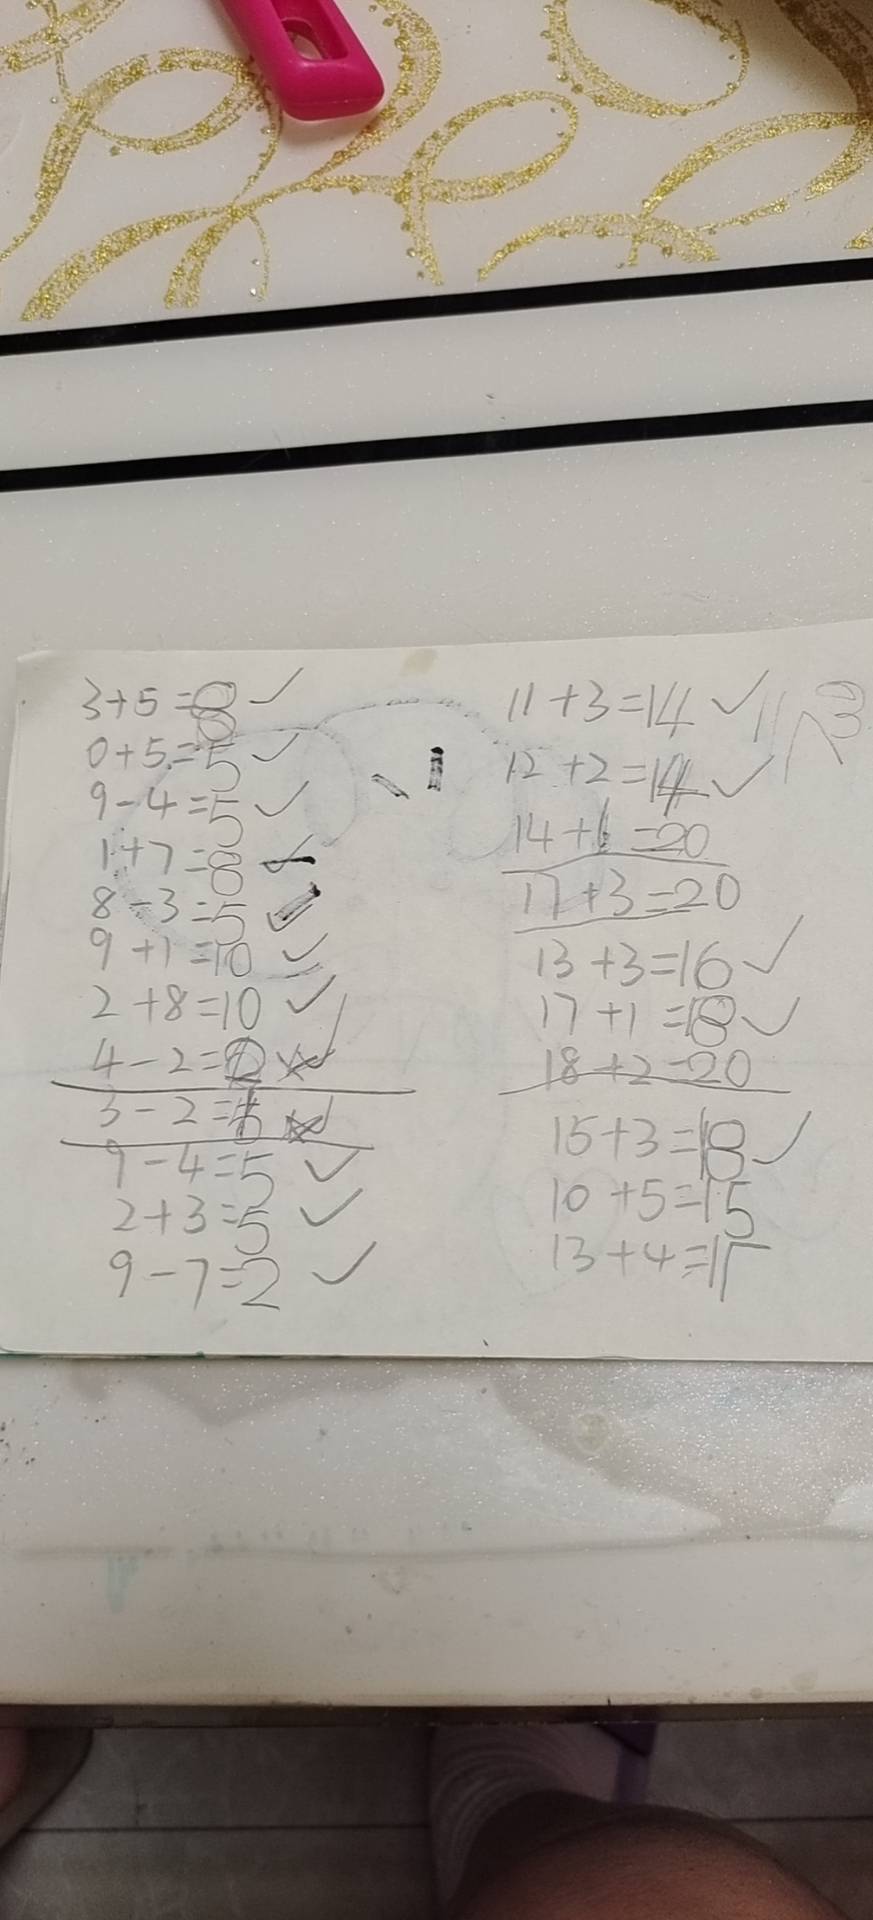 3+5=8 ✓
0+5=5 ✓
9-4=5 ✓
1+7=8 ✓
8-3=5 ✓
9+1=10 ✓
2+8=10 ✓
4-2=2 ✓
3-2=1 ✓
9-4=5 ✓
2+3=5 ✓
9-7=2 ✓
11+3=14 ✓
12+2=14 ✓
14+6=20
17+3=20
13+3=16 ✓
17+1=18 ✓
18+2=20
15+3=18 ✓
10+5=15
13+4=17